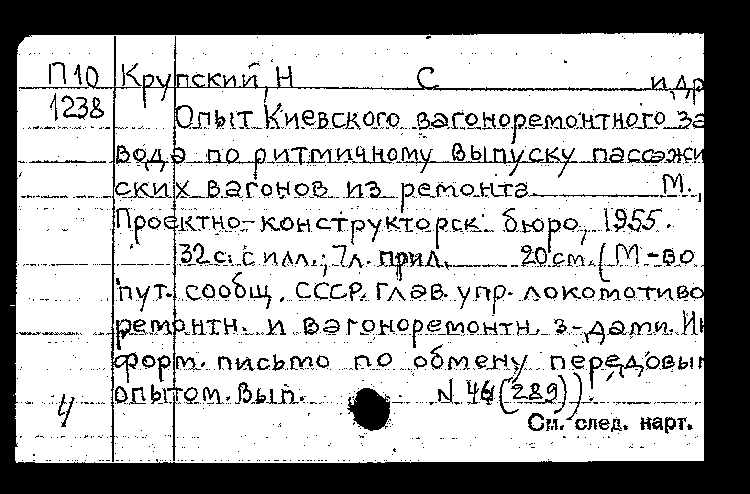 П10 Крупский, Н С и др
1238 Опыт Киевского вагоноремонтного за
вода по ритмичному выпуску пассажи
ских вагонов из ремонта. М.,
Проектно-конструкторск. бюро, 1955.
32 с. с илл.; 7 л. прил. 20 см. (М-во
пут. сообщ. СССР. Глав. упр. локомотиво
ремонтн. и вагоноремонтн. з-дами. Ин
форм. письмо по обмену передовым
опытом. Вып. N 46 (289)).
4
См. след. карт.